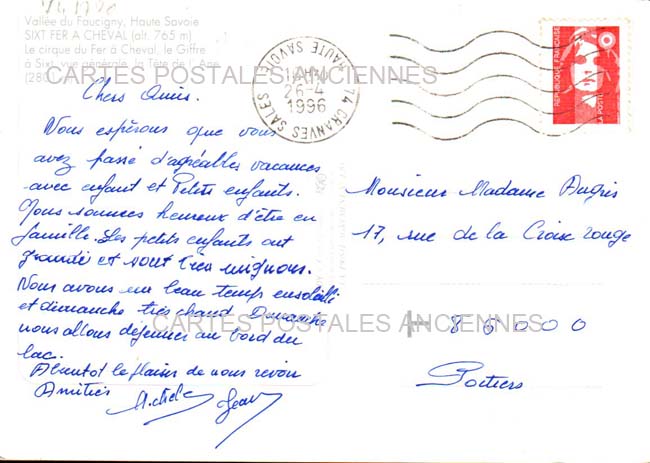 Vallée du Faucigny, Haute Savoie
SIXT FER A CHEVAL (alt. 765 m)
Le cirque du Fer à Cheval, le Giffre
à Sixt, vue générale, la Tête de l'Ane
(280
CARTES POSTALES ANCIENNES
74 CRANVES SALES HAUTE SAVOIE
26-4
1996
REPUBLIQUE FRANÇAISE
LA POSTE
Chers Amis.
Nous espérons que vous
avez passé d'agréables vacances
avec enfant et Petits enfants.
Nous sommes heureux d'être en
famille. Les petits enfants ont
grandi et sont très mignons.
Nous avons eu beau temps ensoleillé
et dimanche très chaud. Dimanche
nous allons déjeuner au bord du
lac.
A bientôt le plaisir de nous revoir
Amitiés
Michèle Jean
Monsieur Madame Augris
17, rue de la Croix rouge
CARTES POSTALES ANCIENNES
86000
Poitiers